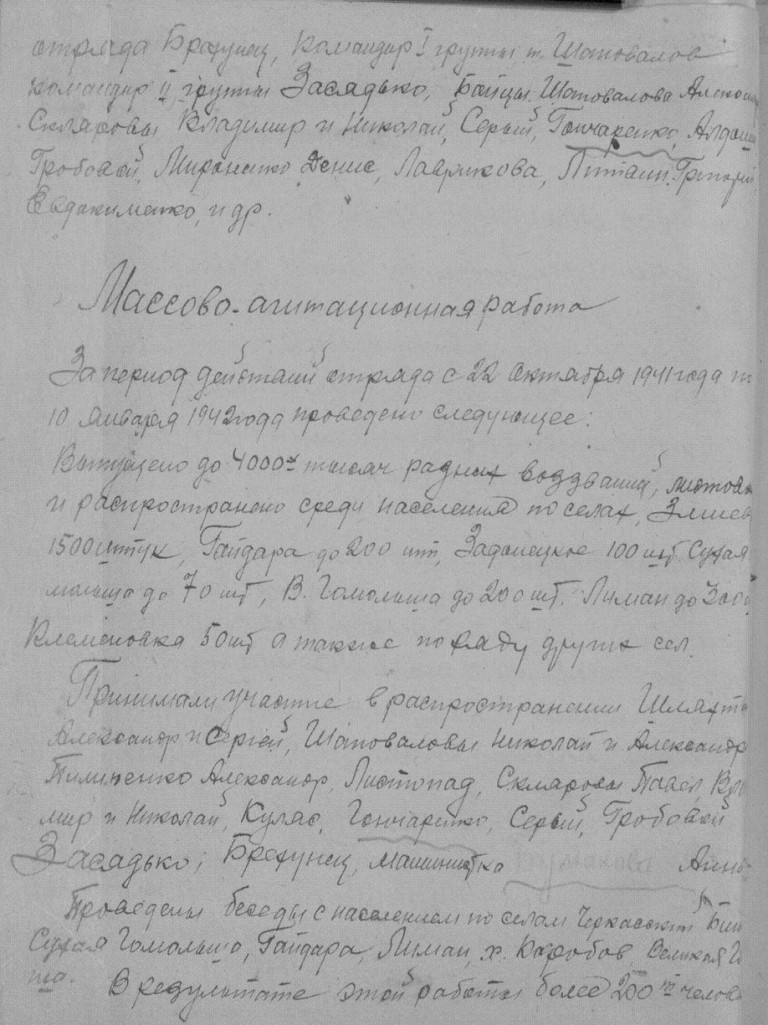 отряда Брехунец, командир I группы т. Шаповалов
командир II группы Засядько, Бойцы Шаповалова Алексан
Скляровы Владимир и Николай, Серый, Гончаренко,
Гробовой, Мироненко Денис, Лаврикова, Григорий
Евдокименко, и др.
Массово-агитационная работа
За период действий отряда с 22 Октября 1941 года по
10 января 1942 года проведено следующее:
Выпущено до 4000х тысяч разных воззваний, листовок
и распространено среди населения по селах, Змиев
1500 штук, Гайдара до 200 шт, Задонецкое 100 шт. Сухая
мольша до 70 шт, В. Гомольша до 200 шт. Лиман до 300
Клеменовка 50 шт а также по ряду других сел.
Принимали участие в распространении
Александр и Сергей, Шаповаловы Николай и Александр
Пилипенко Александр, Листопад, Скляровы Павел Вла
мир и Николай, Куляс, Гончаренко, Серый, Гробовой
Засядько, Брехунец, машинистка Анна
Проведены беседы с населением по селам Черкасский Биш
Сухая Гомольша, Гайдара, Лиман, х. Коробов, Великая Го
ша. В результате этой работы более 200 челове